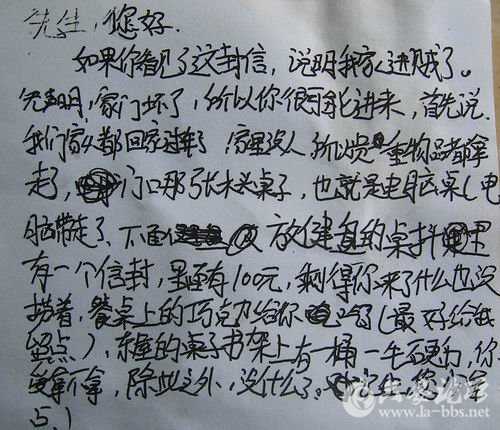 先生，您好.
如果你看见了这封信，说明我家进贼了。
先声明，家门坏了，所以你很可能进来，首先说.
我们家人都回家过年了 家里没人 所以贵重物品都拿
走，门口那张木头桌子，也就是电脑桌(电
脑带走了、下面 放键盘的桌抖里
有一个信封，里还有100元，剩得你来了什么也没
捞着，餐桌上的巧克力给你吃了(最好给我
留点)，东屋的桌子书架上有一桶一毛硬力，你
爱拿不拿，除此之外，没什么了。
5.)
www.la-bbs.net